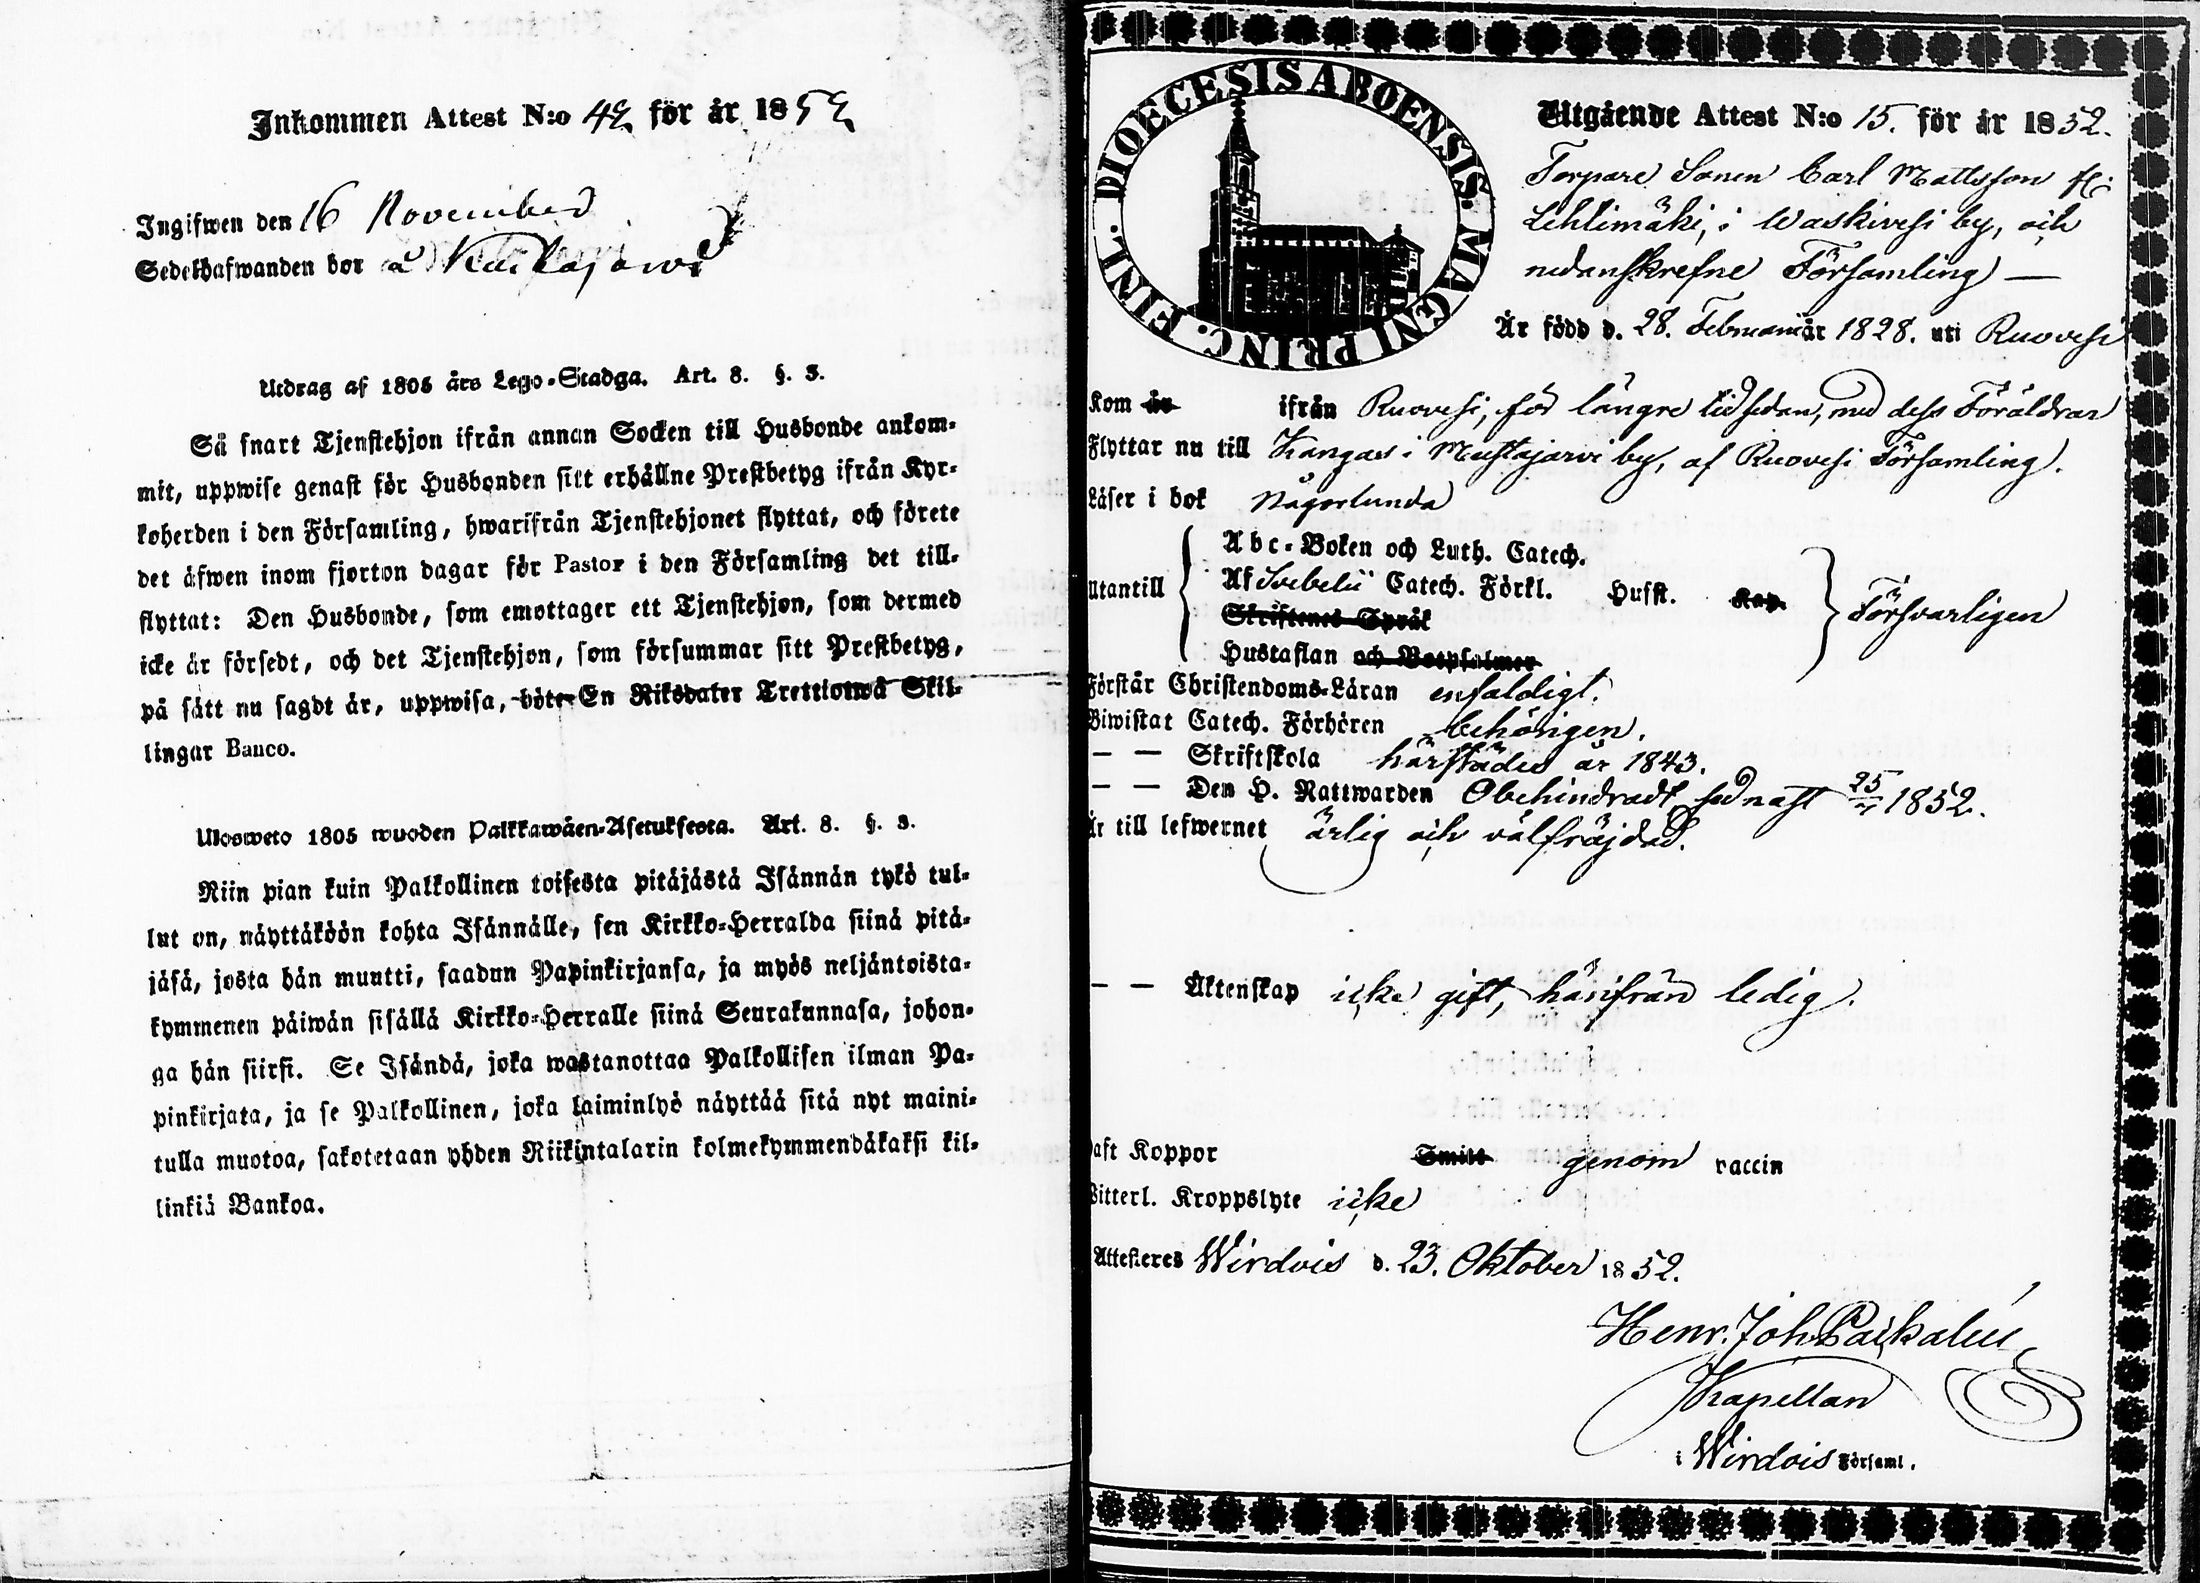 Inkommen Attest N:o 42 för år 1852
Ingifwen den 16 November
Sedelhafwanden bor å
Utdrag af 1805 års Lego-Stadga. Art. 8. §. 3.
Så snart Tjenstehjon ifrån annan Socken till Husbonde ankom-
mit, uppwise genast för Husbonden sitt erhållne Prestbetyg ifrån Kyr-
koherden i den Församling, hwarifrån Tjenstehjonet flyttat, och förete
det äfwen inom fjorton dagar för Pastor i den Församling det till-
flyttat: Den Husbonde, som emottager ett Tjenstehjon, som dermed
icke är försedt, och det Tjenstehjon, som försummar sitt Prestbetyg,
på sätt nu sagdt är, uppwisa, böte En Riksdaler Trettiotwå Skil-
lingar Banco.
Ulosweto 1805 wuoden Palkkawäen-Asetuksesta. Art. 8. §. 3.
Niin pian kuin Palkollinen toisesta pitäjästä Isännän tykö tul-
lut on, näyttäköön kohta Isännälle, sen Kirkko-Herralda siinä pitä-
jäsä, josta hän muutti, saadun Papinkirjansa, ja myös neljäntoista-
kymmenen päiwän sisällä Kirkko-Herralle siinä Seurakunnasa, johon-
ga hän siirsi. Se Isändä, joka wastanottaa Palkollisen ilman Pa-
pinkirjata, ja se Palkollinen, joka laiminlyö näyttää sitä nyt maini-
tulla muotoa, sakotetaan yhden Riikintalarin kolmekymmendäkaksi kil-
linkiä Bankoa.
DIOECESIS ABOENSIS. MAGNI PRINC. FINL.
Utgående Attest N:o 15. för år 1852.
Torpare Sonen Carl Mattsson fr:
Lehtimäki, i Waskivesi by, och
nedanskrefne Församling —
Är född d. 28. Februarii år 1828. uti Ruovesi
Kom år ifrån Ruovesi, för längre tid sedan, med dess Föräldrar
Flyttar nu till Kangas i Mustajärvi by, af Ruovesi Församling.
Läser i bok Någorlunda
Utantill
Abc-Boken och Luth. Catech.
Af Svebelii Catech. Förkl. Hufst. Kap.
Skriftenes Språk
Hustaflan och Botpsalmer
Försvarligen
Förstår Christendoms-Läran enfaldigt.
Biwistat Catech. Förhören behörigen.
— — Skriftskola härstädes år 1843.
— — Den H. Nattwarden Obehindradt sednast 25/4 1852.
Är till lefwernet ärlig och välfräjdad.
— — Äktenskap icke gift, härifrån ledig.
Haft Koppor Smitt genom vaccin
Witterl. Kroppslyte icke
Attesteres Wirdois d. 23. Oktober 1852.
Henr. Joh
Kapellan
i Wirdois Församl.